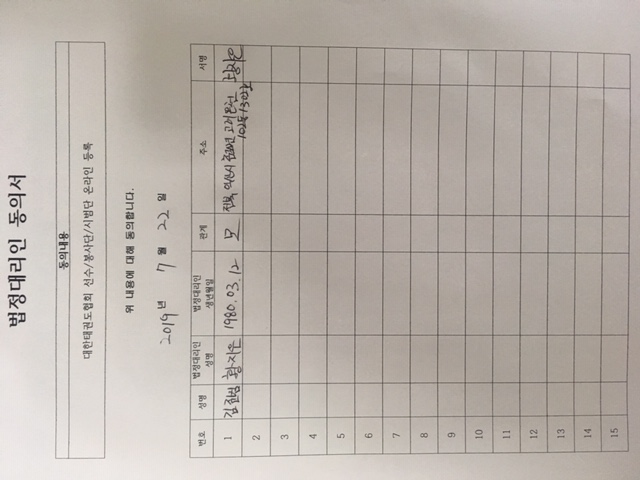 법정대리인 동의서
동의내용
대한태권도협회 선수/봉사단/시범단 온라인 등록
위 내용에 대해 동의합니다.
2019년 7 월 22 일
번호 성명 법정대리인 성명 법정대리인 생년월일 관계 주소 서명
1 황지은 1980.03.12 모 전북 익산시
2
3
4
5
6
7
8
9
10
11
12
13
14
15